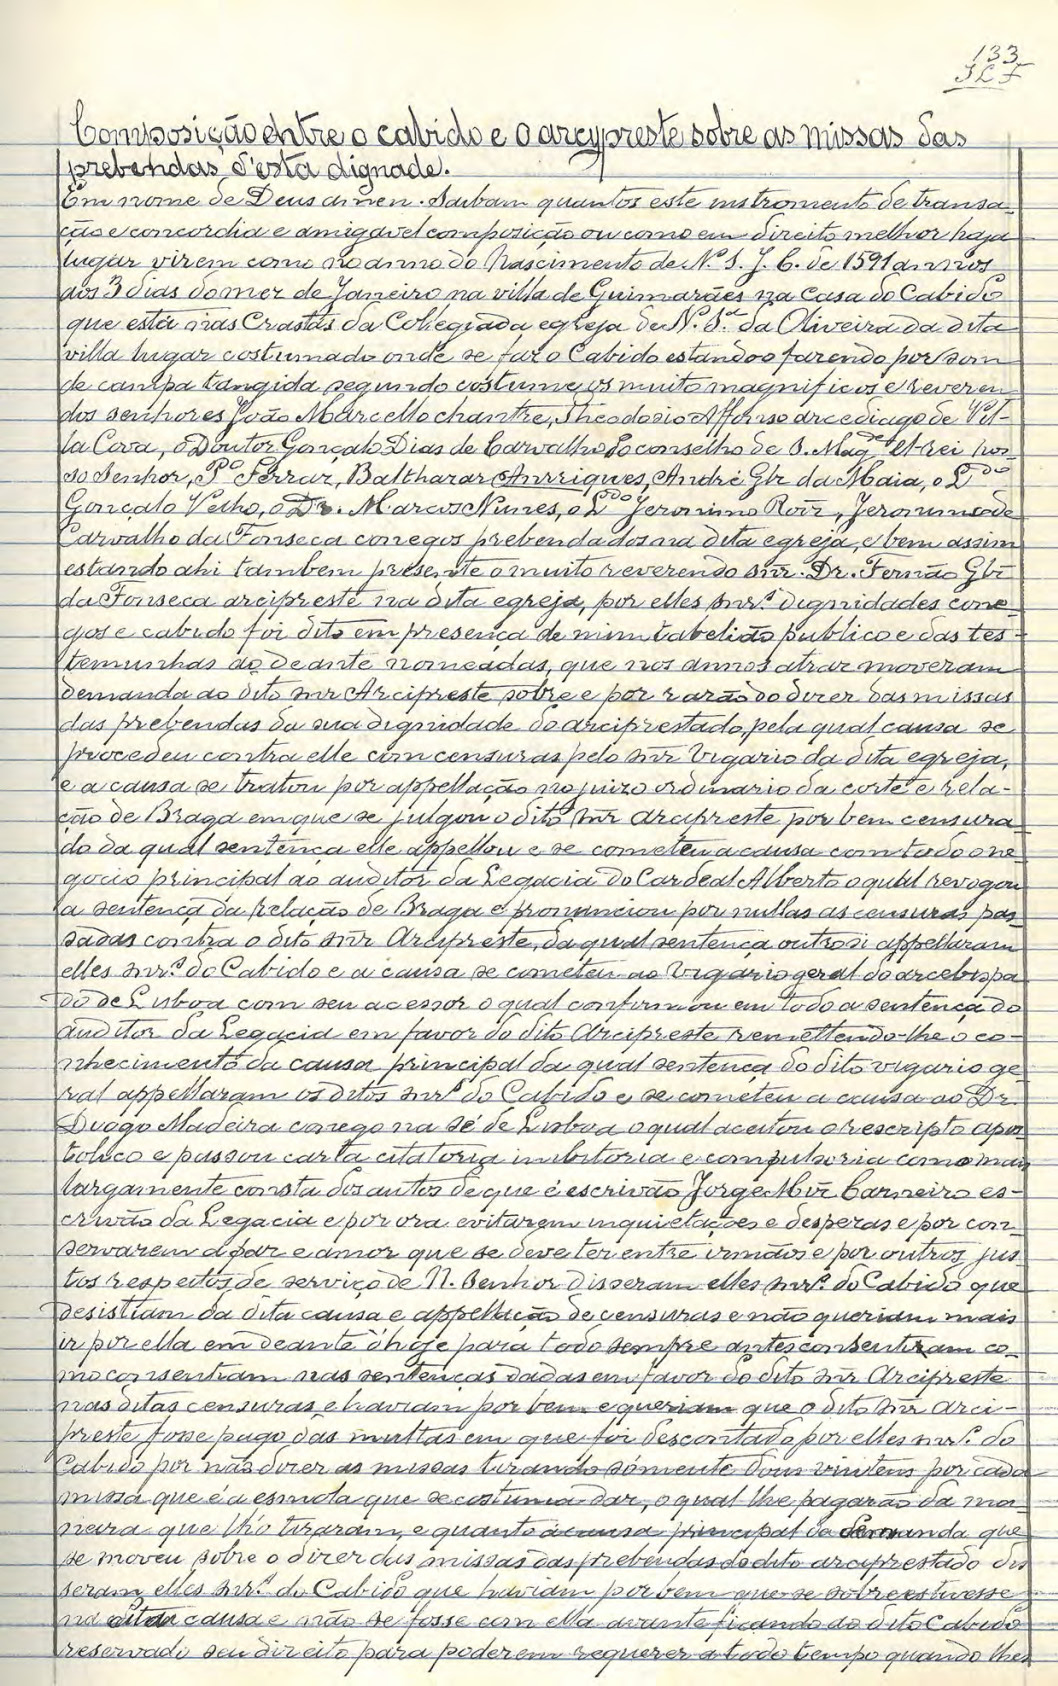 133
Composição entre o cabido e o arcypreste sobre as missas das
prebendas d'esta dignade.
Em nome de Deus amen. Saibam quantos este instromento de transa-
ção e concordia e amigavel composição ou como em direito melhor haja
lugar virem como no anno do Nascimento de N.º S. J. C. de 1591 annos
aos 3 dias do mez de Janeiro na villa de Guimarães na Casa do Cabido
que está nas Crastas da Collegiada egreja de N.ª S.ra da Oliveira da dita
villa lugar costumado onde se faz o Cabido estando o fazendo por som
de campa tangida segundo costume, os muito magnificos e reveren
dos senhores João Marcello chantre, Theodosio Affonso arcediago de Vil-
la Cova, o Doutor Gonçalo Dias de Carvalho do conselho de S. Mag.de El-rei nos-
so Senhor, P.º Ferraz, Balthazar Anrriques, André Glz da Maia, o L.do
Gonçalo Velho, o Dr. Marcos Nunes, o L.do Jeronimo Roiz, Jeronimo de
Carvalho da Fonseca conegos prebendados na dita egreja, e bem assim
estando ahi tambem presente o muito reverendo snr. Dr. Fernão Glz
da Fonseca arcipreste na dita egreja, por elles snr.s dignidades cone-
gos e cabido foi dito em presença de mim tabelião publico e das tes-
temunhas ao deante nomeadas, que nos annos atraz moveram
demanda ao dito snr Arcipreste sobre e por razão do dizer das missas
das prebendas da sua dignidade do arciprestado, pela qual causa se
procedeu contra elle com censuras pelo snr Vigario da dita egreja,
e a causa se tratou por appellação no juizo ordinario da corte e rela-
ção de Braga em que se julgou o dito snr arcipreste por bem censura
do da qual sentença elle appellou e se cometeu a causa com todo o ne
gocio principal ao auditor da Legacia do Cardeal Alberto o qual revogou
a sentença da relação de Braga e pronunciou por nullas as censuras pas
sadas contra o dito snr Arcipreste, da qual sentença outrosi appellaram
elles snr.s do Cabido e a causa se cometeu ao Vigario geral do arcebispa
do de Lisboa com seu acessor o qual confirmou em todo a sentença do
auditor da Legacia em favor do dito Arcipreste remettendo-lhe o co-
nhecimento da causa principal da qual sentença do dito vigario ge-
ral appellaram os ditos snr.s do Cabido e se cometeu a causa ao Dr.
Diogo Madeira conego na sé de Lisboa o qual aceitou o rescripto apos
tolico e passou carta citatoria inibitoria e compulsoria como mais
largamente consta dos autos de que é escrivão Jorge Miz Carneiro es-
crivão da Legacia e por ora evitarem inquietações e despezas e por con-
servarem a paz e amor que se deve ter entre irmãos e por outros jus
tos respeitos de serviço de N. Senhor disseram elles snr.s do Cabido que
desistiam da dita causa e appellação de censuras e não queriam mais
ir por ella em deante d'hoje para todo sempre antes consentiram co-
mo consentiam nas sentenças dadas em favor do dito snr Arcipreste
nas ditas censuras e haviam por bem e queriam que o dito snr Arci-
preste fosse pago das multas em que foi descontado por elles snr.s do
Cabido por não dizer as missas tirando sómente dous vintens por cada
missa que é a esmola que se costuma dar, o qual lhe pagarão da ma
neira que lh'o tiraram, e quanto á causa principal da demanda que
se moveu sobre o dizer das missas das prebendas do dito arciprestado dis
seram elles snr.s do Cabido que haviam por bem que se sobreestivesse
na causa e não se fosse com ella avante ficando ao dito Cabido
reservado seu direito para poderem requerer a todo tempo quando lhes